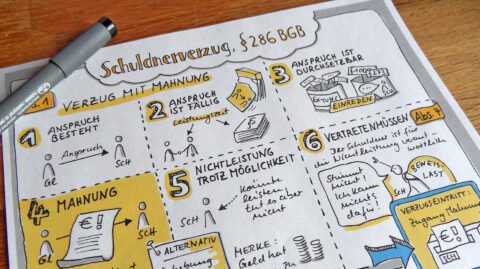 Schuldnerverzug, § 286 BGB
s. 1 VERZUG MIT MAHNUNG
1 ANSPRUCH
BESTEHT
Anspruch
GL
SCH
2 ANSPRUCH
IST FÄLLIG
Leistungszeit
3 ANSPRUCH IST
DURCHSETZBAR
EINREDEN
4 MAHNUNG
€!
GL
SCH
5 NICHTLEISTUNG
TROTZ MÖGLICHKEIT
SCH
Könnte
leisten,
tut es aber
nicht
ALTERNATIV
MERKE:
Geld hat
6 VERTRETENMÜSSEN
Abs. 4
Der Schuldner ist für
die Nichtleistung verant-
wortlich
Stimmt
nicht!
Ich kann
nichts
dafür!
SCH
BEWEIS
LAST
VERZUGSEINTRITT:
Zugang Mahnung
€!
SCH